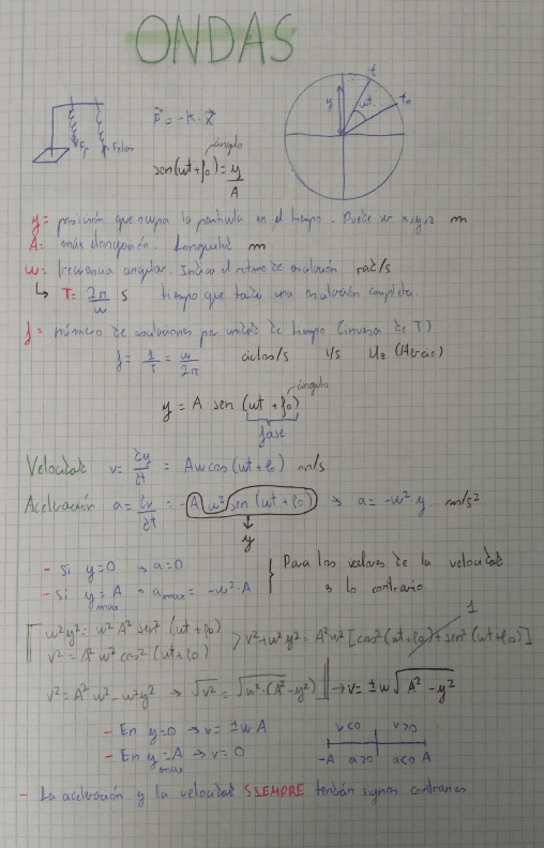 ONDAS
F = -K · X
y
t
ωt
t₀
Fp
Felas
ángulo
sen(ωt + φ₀) = y/A
y = posición que ocupa la partícula en el tiempo. Puede ser x, y, z m
A = máx elongación. Longitud m
ω = frecuencia angular. Indica el ritmo de oscilación rad/s
↳ T = 2π/ω s tiempo que tarda una oscilación completa.
f = número de oscilaciones por unidad de tiempo (inversa de T)
f = 1/T = ω/2π ciclos/s 1/s Hz (Hercio)
ángulo
y = A · sen (ωt + φ₀)
fase
Velocidad v = δy/δt = Aω cos (ωt + φ₀) m/s
Aceleración a = δv/δt = -A ω² sen (ωt + φ₀) → a = -ω² y m/s²
y
- Si y=0 → a=0
- Si y = A → a máx = -ω² · A
máx
Para los valores de la velocidad
es lo contrario
ω²y² = ω² A² sen² (ωt + φ₀)
v² = A² ω² cos² (ωt + φ₀)
v² + ω² y² = A² ω² [cos² (ωt + φ₀) + sen² (ωt + φ₀)]
1
v² = A² ω² - ω² y² → √v² = √ω² · (A² - y²) → v = ± ω √A² - y²
- En y=0 → v = ± ω A
- En y = A → v = 0
máx
v<0 v>0
-A a>0 a<0 A
- La aceleración y la velocidad SIEMPRE tendrán signos contrarios.